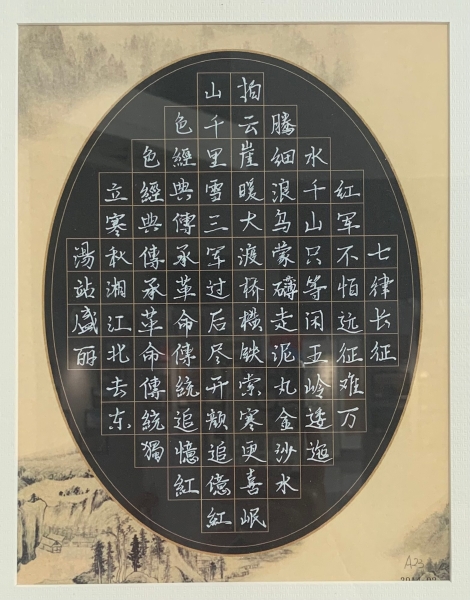 七律长征
红军不怕远征难万
水千山只等闲五岭逶迤
腾细浪乌蒙礴走泥丸金沙水
拍云崖暖大渡桥横铁索寒更喜岷
山千里雪三军过后尽开颜追億紅
色經典傳承革命傳統追憶紅
色經典傳承革命傳統獨
立寒秋湘江北去东
湯站盛丽